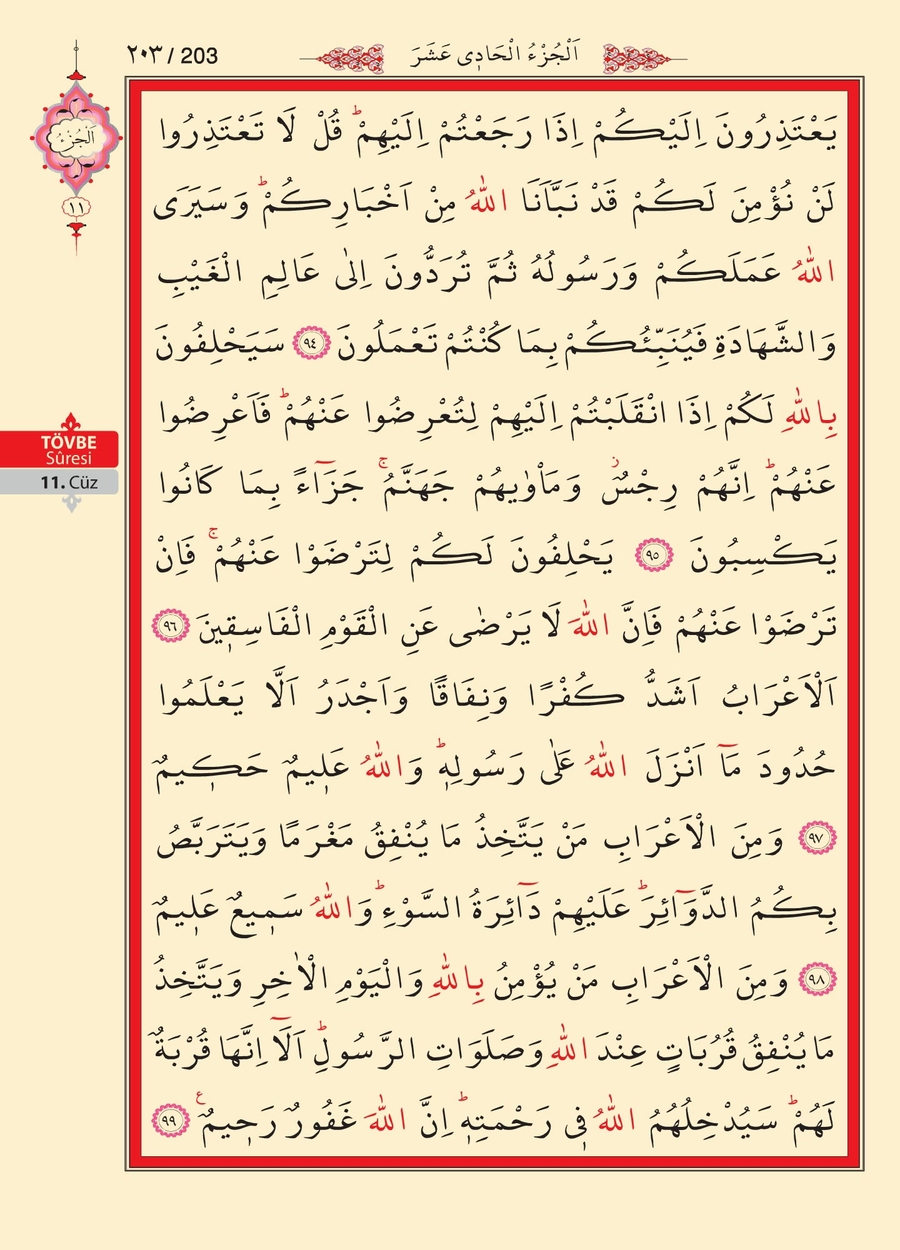 ٢٠٣ / 203
اَلْجُزْءُ الْحَادِى عَشَرَ
اَلْجُزْءُ
١١
يَعْتَذِرُونَ اِلَيْكُمْ اِذَا رَجَعْتُمْ اِلَيْهِمْۜ قُلْ لَا تَعْتَذِرُوا
لَنْ نُؤْمِنَ لَكُمْ قَدْ نَبَّاَنَا اللّٰهُ مِنْ اَخْبَارِكُمْۜ وَسَيَرَى
اللّٰهُ عَمَلَكُمْ وَرَسُولُهُ ثُمَّ تُرَدُّونَ اِلٰى عَالِمِ الْغَيْبِ
وَالشَّهَادَةِ فَيُنَبِّئُكُمْ بِمَا كُنْتُمْ تَعْمَلُونَ ﴿٩٤﴾ سَيَحْلِفُونَ
بِاللّٰهِ لَكُمْ اِذَا انْقَلَبْتُمْ اِلَيْهِمْ لِتُعْرِضُوا عَنْهُمْۜ فَاَعْرِضُوا
عَنْهُمْۜ اِنَّهُمْ رِجْسٌۘ وَمَاْوٰيهُمْ جَهَنَّمُۚ جَزَٓاءً بِمَا كَانُوا
يَكْسِبُونَ ﴿٩٥﴾ يَحْلِفُونَ لَكُمْ لِتَرْضَوْا عَنْهُمْۚ فَاِنْ
تَرْضَوْا عَنْهُمْ فَاِنَّ اللّٰهَ لَا يَرْضٰى عَنِ الْقَوْمِ الْفَاسِقٖينَ ﴿٩٦﴾
اَلْاَعْرَابُ اَشَدُّ كُفْرًا وَنِفَاقًا وَاَجْدَرُ اَلَّا يَعْلَمُوا
حُدُودَ مَٓا اَنْزَلَ اللّٰهُ عَلٰى رَسُولِهٖۜ وَاللّٰهُ عَلٖيمٌ حَكٖيمٌ
﴿٩٧﴾ وَمِنَ الْاَعْرَابِ مَنْ يَتَّخِذُ مَا يُنْفِقُ مَغْرَمًا وَيَتَرَبَّصُ
بِكُمُ الدَّوَٓائِرَۜ عَلَيْهِمْ دَٓائِرَةُ السَّوْءِۜ وَاللّٰهُ سَمٖيعٌ عَلٖيمٌ
﴿٩٨﴾ وَمِنَ الْاَعْرَابِ مَنْ يُؤْمِنُ بِاللّٰهِ وَالْيَوْمِ الْاٰخِرِ وَيَتَّخِذُ
مَا يُنْفِقُ قُرُبَاتٍ عِنْدَ اللّٰهِ وَصَلَوَاتِ الرَّسُولِۜ اَلَٓا اِنَّهَا قُرْبَةٌ
لَهُمْۜ سَيُدْخِلُهُمُ اللّٰهُ فٖى رَحْمَتِهٖۜ اِنَّ اللّٰهَ غَفُورٌ رَحٖيمٌࣖ ﴿٩٩﴾
TÖVBE
Sûresi
11. Cüz